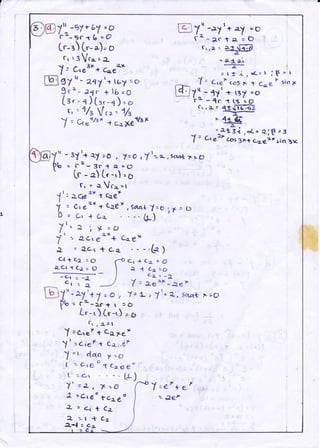 3. a. y" -5y+6y=0
r² -5r+6=0
(r-3)(r-2)=0
r₁=3 ∨ r₂=2
y = C₁e³ˣ + C₂e²ˣ
b 9y" - 24y' + 16y=0
9r² - 24r + 16=0
(3r-4)(3r-4)=0
r₁ = 4/3 ∨ r₂ = 4/3
y = C₁e^4/3x + C₂xe^4/3x
c y" -2y' +2y =0
r² -2r + 2 = 0
r₁,₂ =
= 1 ± i, α=1 ; β=1
y = C₁eˣ cos x + C₂eˣ sin x
d. y" - 4y' + 13y =0
r² - 4r + 13 =0
r₁,₂ =
= 2±3i, α=2; β=3
y = C₁e²ˣ cos3x + C₂e²ˣ sin 3x
4. a y" -3y' +2y =0, y=0, y'=2, saat x=0
r² - 3r + 2 =0
(r-2)(r-1)=0
r₁ = 2 ∨ r₂=1
y' = 2C₁e²ˣ + C₂eˣ
y = C₁e²ˣ + C₂eˣ, saat y=0 ; x=0
0 = C₁ + C₂ ....(1)
y' = 2 ; x=0
y' = 2C₁e²ˣ + C₂eˣ
2 = 2C₁ + C₂ ...(2)
C₁+C₂ =0
2C₁+C₂ = 2
-C₁ = -2
C₁ = 2
C₁ + C₂ =0
2 + C₂ =0
C₂ = -2
y = 2e²ˣ - 2eˣ
b y" -2y' + y =0, y=1, y'=2, saat x=0
r² -2r + 1 =0
(r-1)(r-1)=0
r₁,₂=1
y = C₁eˣ + C₂xeˣ
y' = C₁eˣ + C₂.eˣ
y=1 dan x=0
1 = C₁e⁰ + C₂0e⁰
1 = C₁ .... (1)
y' = 2, x=0
2 = C₁e⁰ + C₂e⁰
2 = C₁ + C₂
2 = 1 + C₂
2-1 = C₂
1 = C₂
y = eˣ + eˣ
= 2eˣ